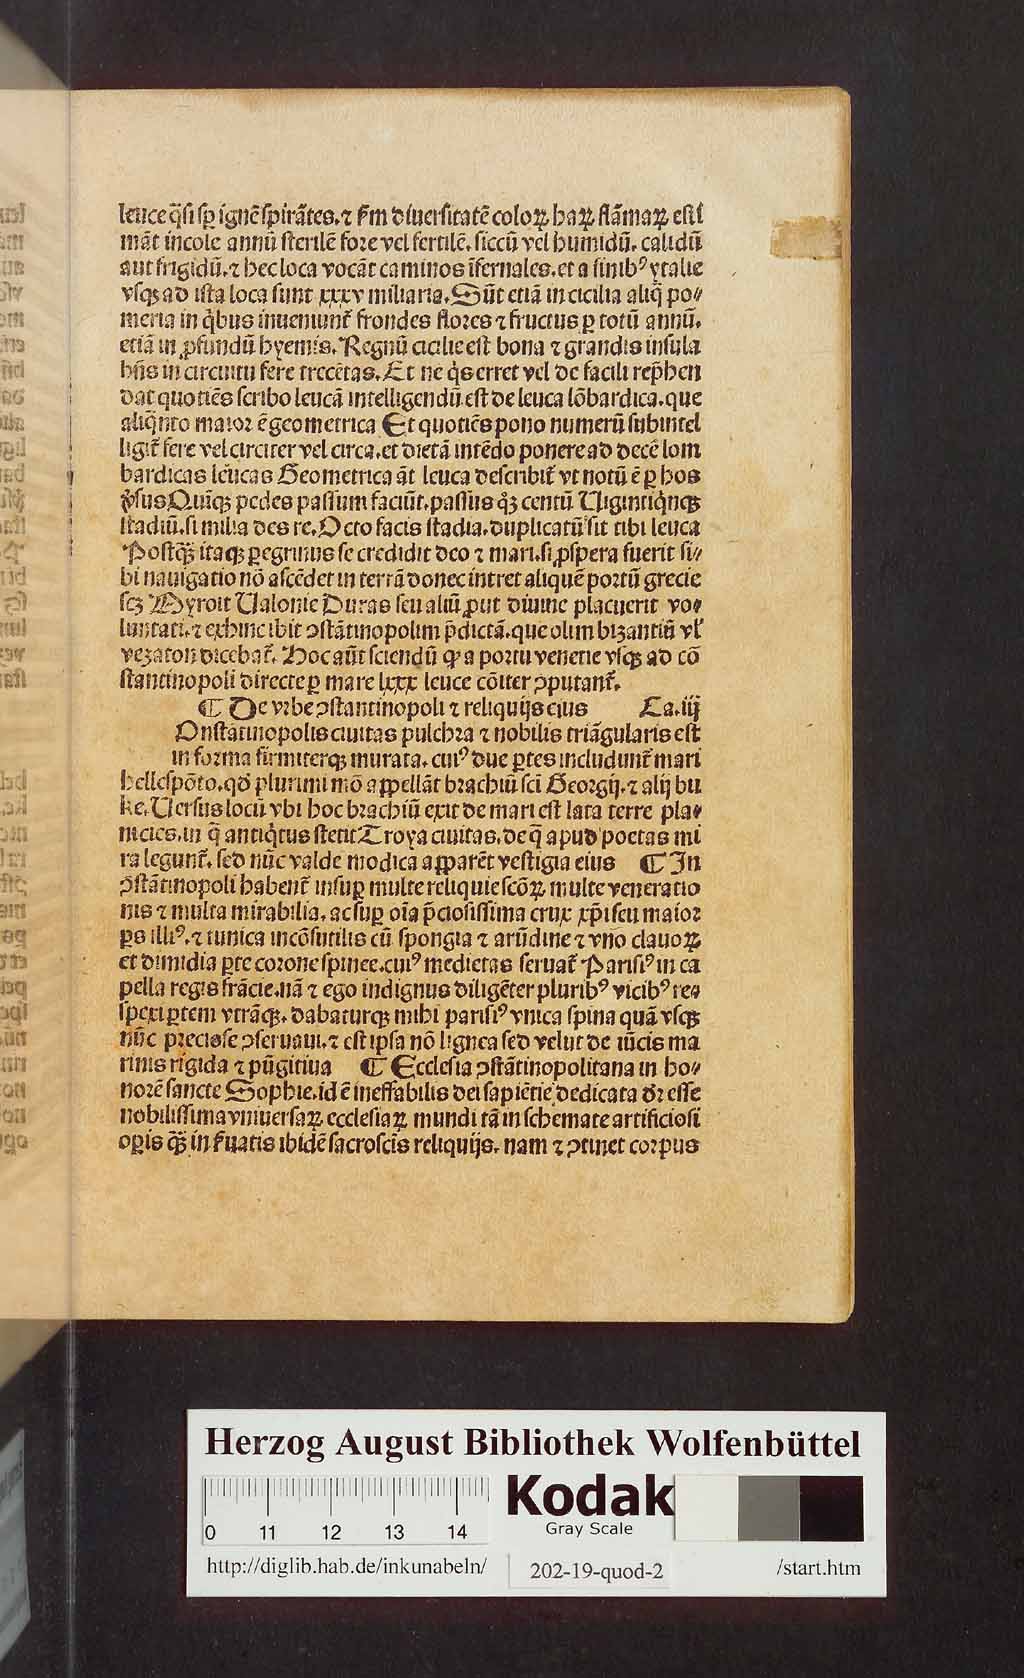 leuce q̄si sꝑ ignē spirātes. ⁊ ẜm diuersitatē coloꝝ haꝝ flāmaꝝ esti
māt incole annū sterilē fore vel fertilē. siccū vel humidū. calidū
aut frigidū. ⁊ hec loca vocāt caminos īfernales. et a sinibꝰ ytalie
vsqꝫ ad ista loca sunt xxxv miliaria. Sūt etiā in cicilia aliq̄ po⸗
meria in q̇bus inueniunt᷑ frondes flores ⁊ fructus ꝑ totū annū.
etiā in ꝓfundū hyemis. Regnū cicilie est bona ⁊ grandis insula
hn̄s in circuitu fere trecētas. Et ne q̇s erret vel de facili rep̄hen
dat quotiēs scribo leucā intelligendū est de leuca lōbardica. que
aliq̄nto maior ē geometrica Et quotiēs pono numerū subintel
ligit᷑ fere vel circiter vel circa. et dietā intēdo ponere ad decē lom
bardicas leucas Geometrica āt leuca describit᷑ vt notū ē ꝑ hos
v̓sus Quīqꝫ pedes passum faciūt. passus qͦꝫ centū Uigintiq̇nqꝫ
stadiū. si milia des re. Octo facis stadia. duplicatū sit tibi leuca
Postq̄ꝫ itaqꝫ ꝑegrinus se credidit deo ⁊ mari. si ꝓspera fuerit si⸗
bi nauigatio nō ascēdet in terrā donec intret aliquē portū grecie
scꝫ Myroit Ualonie Duras seu aliū ꝓut diuine placuerit vo⸗
luntati. ⁊ exhinc ibit ꝯstātinopolim p̄dictā. que olim bizantiū vl̓
vezaton dicebat᷑. Hoc aūt sciendū ꝙ a portu venetie vsqꝫ ad cō
stantinopoli directe ꝑ mare lxxx leuce cōiter ꝯputant᷑.
¶ De vrbe ꝯstantinopoli ⁊ reliquijs eius Ca. iij
Onstātinopolis ciuitas pulchra ⁊ nobilis triāgularis est
in forma firmiterqꝫ murata. cuiꝰ due ꝑtes includunt᷑ mari
hellespōto. qd̄ plurimi mō appellāt brachiū sci̅ Georgij. ⁊ alij bu
ke. Uersus locū vbi hoc brachiū exit de mari est lata terre pla⸗
nicies. in q̄ antiq̇tus stetit Troya ciuitas. de q̄ apud poetas mi
ra legunt᷑. sed nūc valde modica apparēt vestigia eius ¶ In
ꝯstātinopoli habent᷑ insuꝑ multe reliquie scōꝝ multe veneratio
nis ⁊ multa mirabilia. ac suꝑ oīa p̄ciosissima crux xp̄i seu maior
ꝑs illiꝰ. ⁊ tunica incōsutilis cū spongia ⁊ arūdine ⁊ vno clauoꝝ
et dimidia ꝑte corone spinee. cuiꝰ medietas seruat᷑ Parisiꝰ in ca
pella regis frācie. nā ⁊ ego indignus diligēter pluribꝰ vicibꝰ re⸗
spexi ꝑtem vtrāqꝫ. dabaturqꝫ mihi parisiꝰ vnica spina quā vsqꝫ
nūc preciose ꝯseruaui. ⁊ est ipsa nō lignea sed velut de iūcis ma
rinis rigida ⁊ pūgitiua ¶ Ecclesia ꝯstātinopolitana in ho⸗
norē sancte Sophie. id ē ineffabilis dei sapiētie dedicata dr̄ esse
nobilissima vniuersaꝝ ecclesiaꝝ mundi tā in schemate artificiosi
oꝑis q̄ꝫ in ẜuatis ibidē sacrosctīs reliquijs. nam ⁊ ꝯtinet corpus
Herzog August Bibliothek Wolfenbüttel
0 11 12 13 14
Kodak
Gray Scale
http://diglib.hab.de/inkunabeln/ 202-19-quod-2 /start.htm